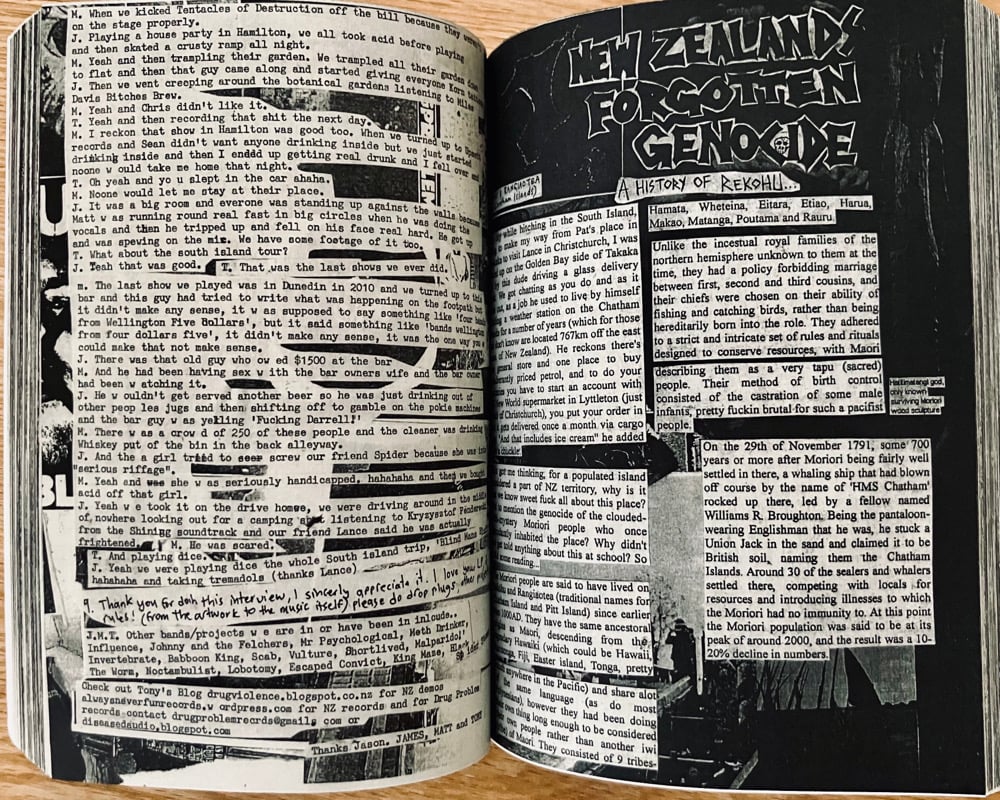 M. When we kicked Tentacles of Destruction off the bill because they
on the stage properly.
J. Playing a house party in Hamilton, we all took acid before playing
and then skated a crusty ramp all night.
M. Yeah and then trampling their garden. We trampled all their garden down
to flat and then that guy came along and started giving everyone Korn
J. Then we went creeping around the botanical gardens listening to Miles
Davis Bitches Brew.
M. Yeah and Chris didn't like it.
T. Yeah and then recording that shit the next day.
M. I reckon that show in Hamilton was good too. When we turned up to
records and Sean didn't want anyone drinking inside but we just started
drinking inside and then I ended up getting real drunk and I fell over and
noone w ould take me home that night.
T. Oh yeah and yo u slept in the car ahaha.
M. Noone would let me stay at their place.
J. It was a big room and everone was standing up against the walls because
Matt w as running round real fast in big circles when he was doing the
vocals and then he tripped up and fell on his face real hard. He got up
and was spewing on the mix. We have some footage of it too.
T. What about the south island tour?
J. Yeah that was good. T. That was the last shows we ever did.
m. The last show we played was in Dunedin in 2010 and we turned up to this
bar and this guy had tried to write what was happening on the footpath but
it didn't make any sense, it w as supposed to say something like 'four bands
from Wellington Five Dollars', but it said something like 'bands wellington
from four dollars five', it didn't make any sense, it was the one way you
could make that not make sense.
J. There was that old guy who ow ed $1500 at the bar
M. And he had been having sex w ith the bar owners wife and the bar owner
had been w atching it.
J. He w ouldn't get served another beer so he was just drinking out of
other peop les jugs and then shifting off to gamble on the pokie machine
and the bar guy w as yelling 'Fucking Darrell!'
M. There w as a crow d of 250 of these people and the cleaner was drinking
Whiskey put of the bin in the back alleyway.
J. And the a girl tried to screw our friend Spider because she was into
"serious riffage".
M. Yeah and she w as seriously handicapped, hahahaha and then we bought
acid off that girl.
J. Yeah w e took it on the drive home, we were driving around in the middle
of nowhere looking out for a camping spot listening to Kryzysztof Penderecki
from the Shining soundtrack and our friend Lance said he was actually
frightened. M. He was scared.
T. And playing dice.
J. Yeah we were playing dice the whole South island trip, 'Blind Mans
hahahaha and taking tremadols (thanks Lance)
9. Thank you for doin this interview, I sincerly appreciate it. I love your LP
rules! (from the artwork to the music itself) please do drop plugs, other projects
J.M.T. Other bands/projects w e are in or have been in inlcude.
Influence, Johnny and the Felchers, Mr Psychological, Meth Drinker,
Invertebrate, Babboon King, Scab, Vulture, Shortlived, Malparido!
The Worm, Noctambulist, Lobotomy, Escaped Convict, King Maze,
Check out Tony's Blog drugviolence.blogspot.co.nz for NZ demos
alwaysneverfunrecords.w ordpress.com for NZ records and for Drug Problem
records contact drugproblemrecords@gmail. com or
diseasedaudio.blogspot.com
Thanks Jason. JAMES, MATT and TONY
NEW ZEALANDS
FORGOTTEN
GENOCIDE
A HISTORY OF REKOHU...
while hitching in the South Island,
make my way from Pat's place in
to visit Lance in Christchurch, I was
up on the Golden Bay side of Takaka
this dude driving a glass delivery
We got chatting as you do and as it
out, as a job he used to live by himself
a weather station on the Chatham
for a number of years (which for those
know are located 767km off the east
of New Zealand). He reckons there's
general store and one place to buy
priced petrol, and to do your
you have to start an account with
World supermarket in Lyttleton (just
of Christchurch), you put your order in
gets delivered once a month via cargo
"And that includes ice cream" he added
a chuckle!
got me thinking, for a populated island
considered a part of NZ territory, why is it
we know sweet fuck all about this place?
mention the genocide of the clouded-
mystery Moriori people who once
inhabited the place? Why didn't
get told anything about this at school? So
reading...
Moriori people are said to have lived on
and Rangiaotea (traditional names for
Island and Pitt Island) since earlier
1000AD. They have the same ancestoral
as Maori, descending from the
Hawaiki (which could be Hawaii,
Fiji, Easter island, Tonga, pretty
anywhere in the Pacific) and share alot
the same language (as do most
however they had been doing
own thing long enough to be considered
own people rather than another iwi
of Maori. They consisted of 9 tribes-
Hamata, Wheteina, Eitara, Etiao, Harua,
Makao, Matanga, Poutama and Rauru.
Unlike the incestual royal families of the
northern hemisphere unknown to them at the
time, they had a policy forbidding marriage
between first, second and third cousins, and
their chiefs were chosen on their ability of
fishing and catching birds, rather than being
hereditarily born into the role. They adhered
to a strict and intricate set of rules and rituals
designed to conserve resources, with Maori
describing them as a very tapu (sacred)
people. Their method of birth control
consisted of the castration of some male
infants, pretty fuckin brutal for such a pacifist
people.
god,
only known
surviving Moriori
wood sculpture
On the 29th of November 1791, some 700
years or more after Moriori being fairly well
settled in there, a whaling ship that had blown
off course by the name of 'HMS Chatham'
rocked up there, led by a fellow named
Williams R. Broughton. Being the pantaloon-
wearing Englishman that he was, he stuck a
Union Jack in the sand and claimed it to be
British soil, naming them the Chatham
Islands. Around 30 of the sealers and whalers
settled there, competing with locals for
resources and introducing illnesses to which
the Moriori had no immunity to. At this point
the Moriori population was said to be at its
peak of around 2000, and the result was a 10-
20% decline in numbers.